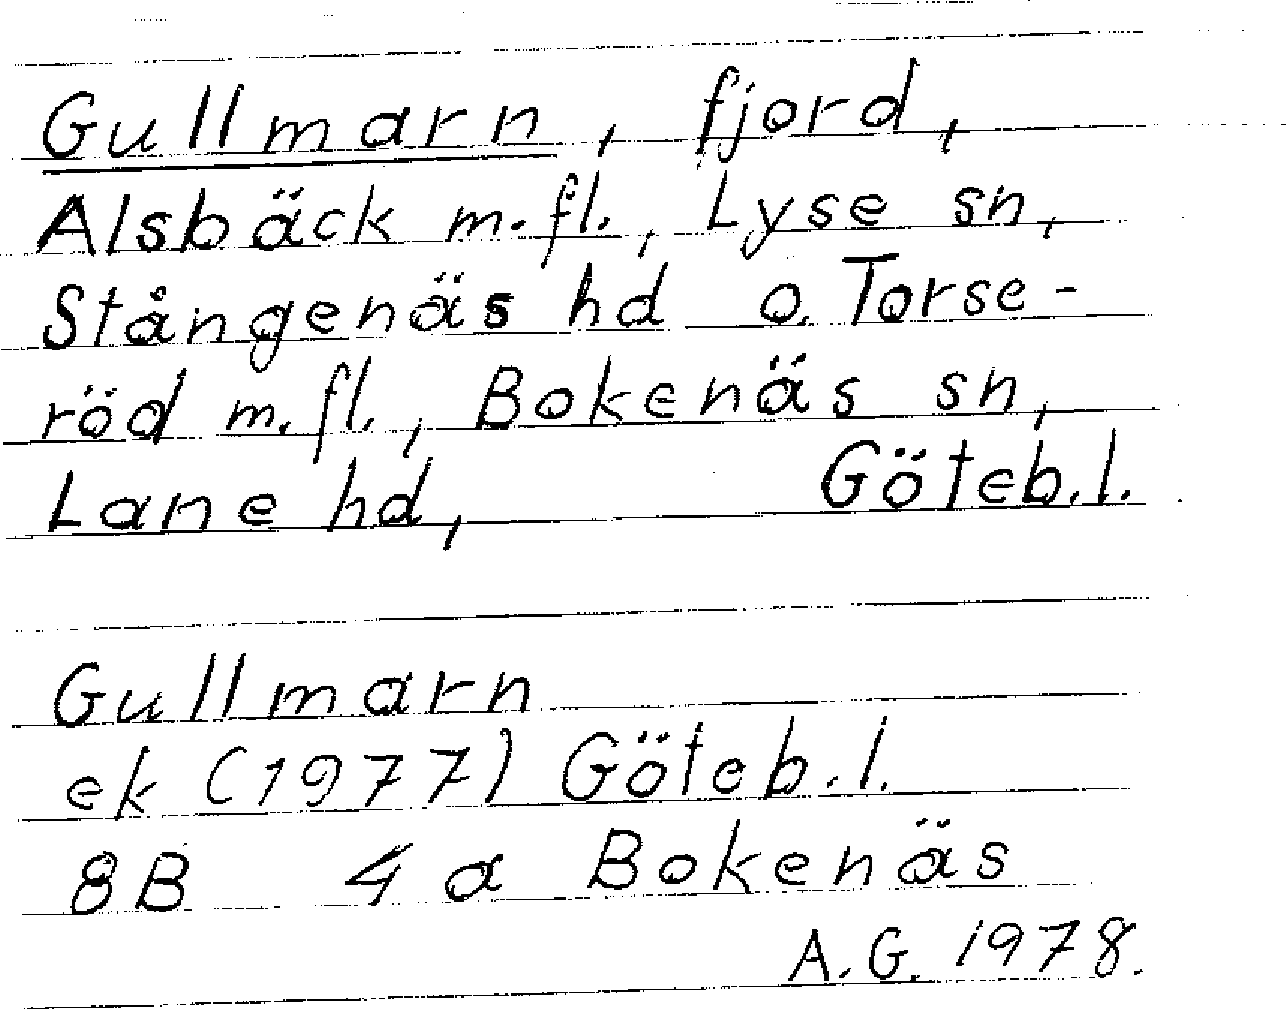 Gullmarn, fjord,
Alsbäck m.fl., Lyse sn,
Stångenäs hd o. Torse-
röd m.fl., Bokenäs sn,
Lane hd, Göteb.l.
Gullmarn
ek (1977) Göteb.l.
8B 4a Bokenäs
A.G. 1978.